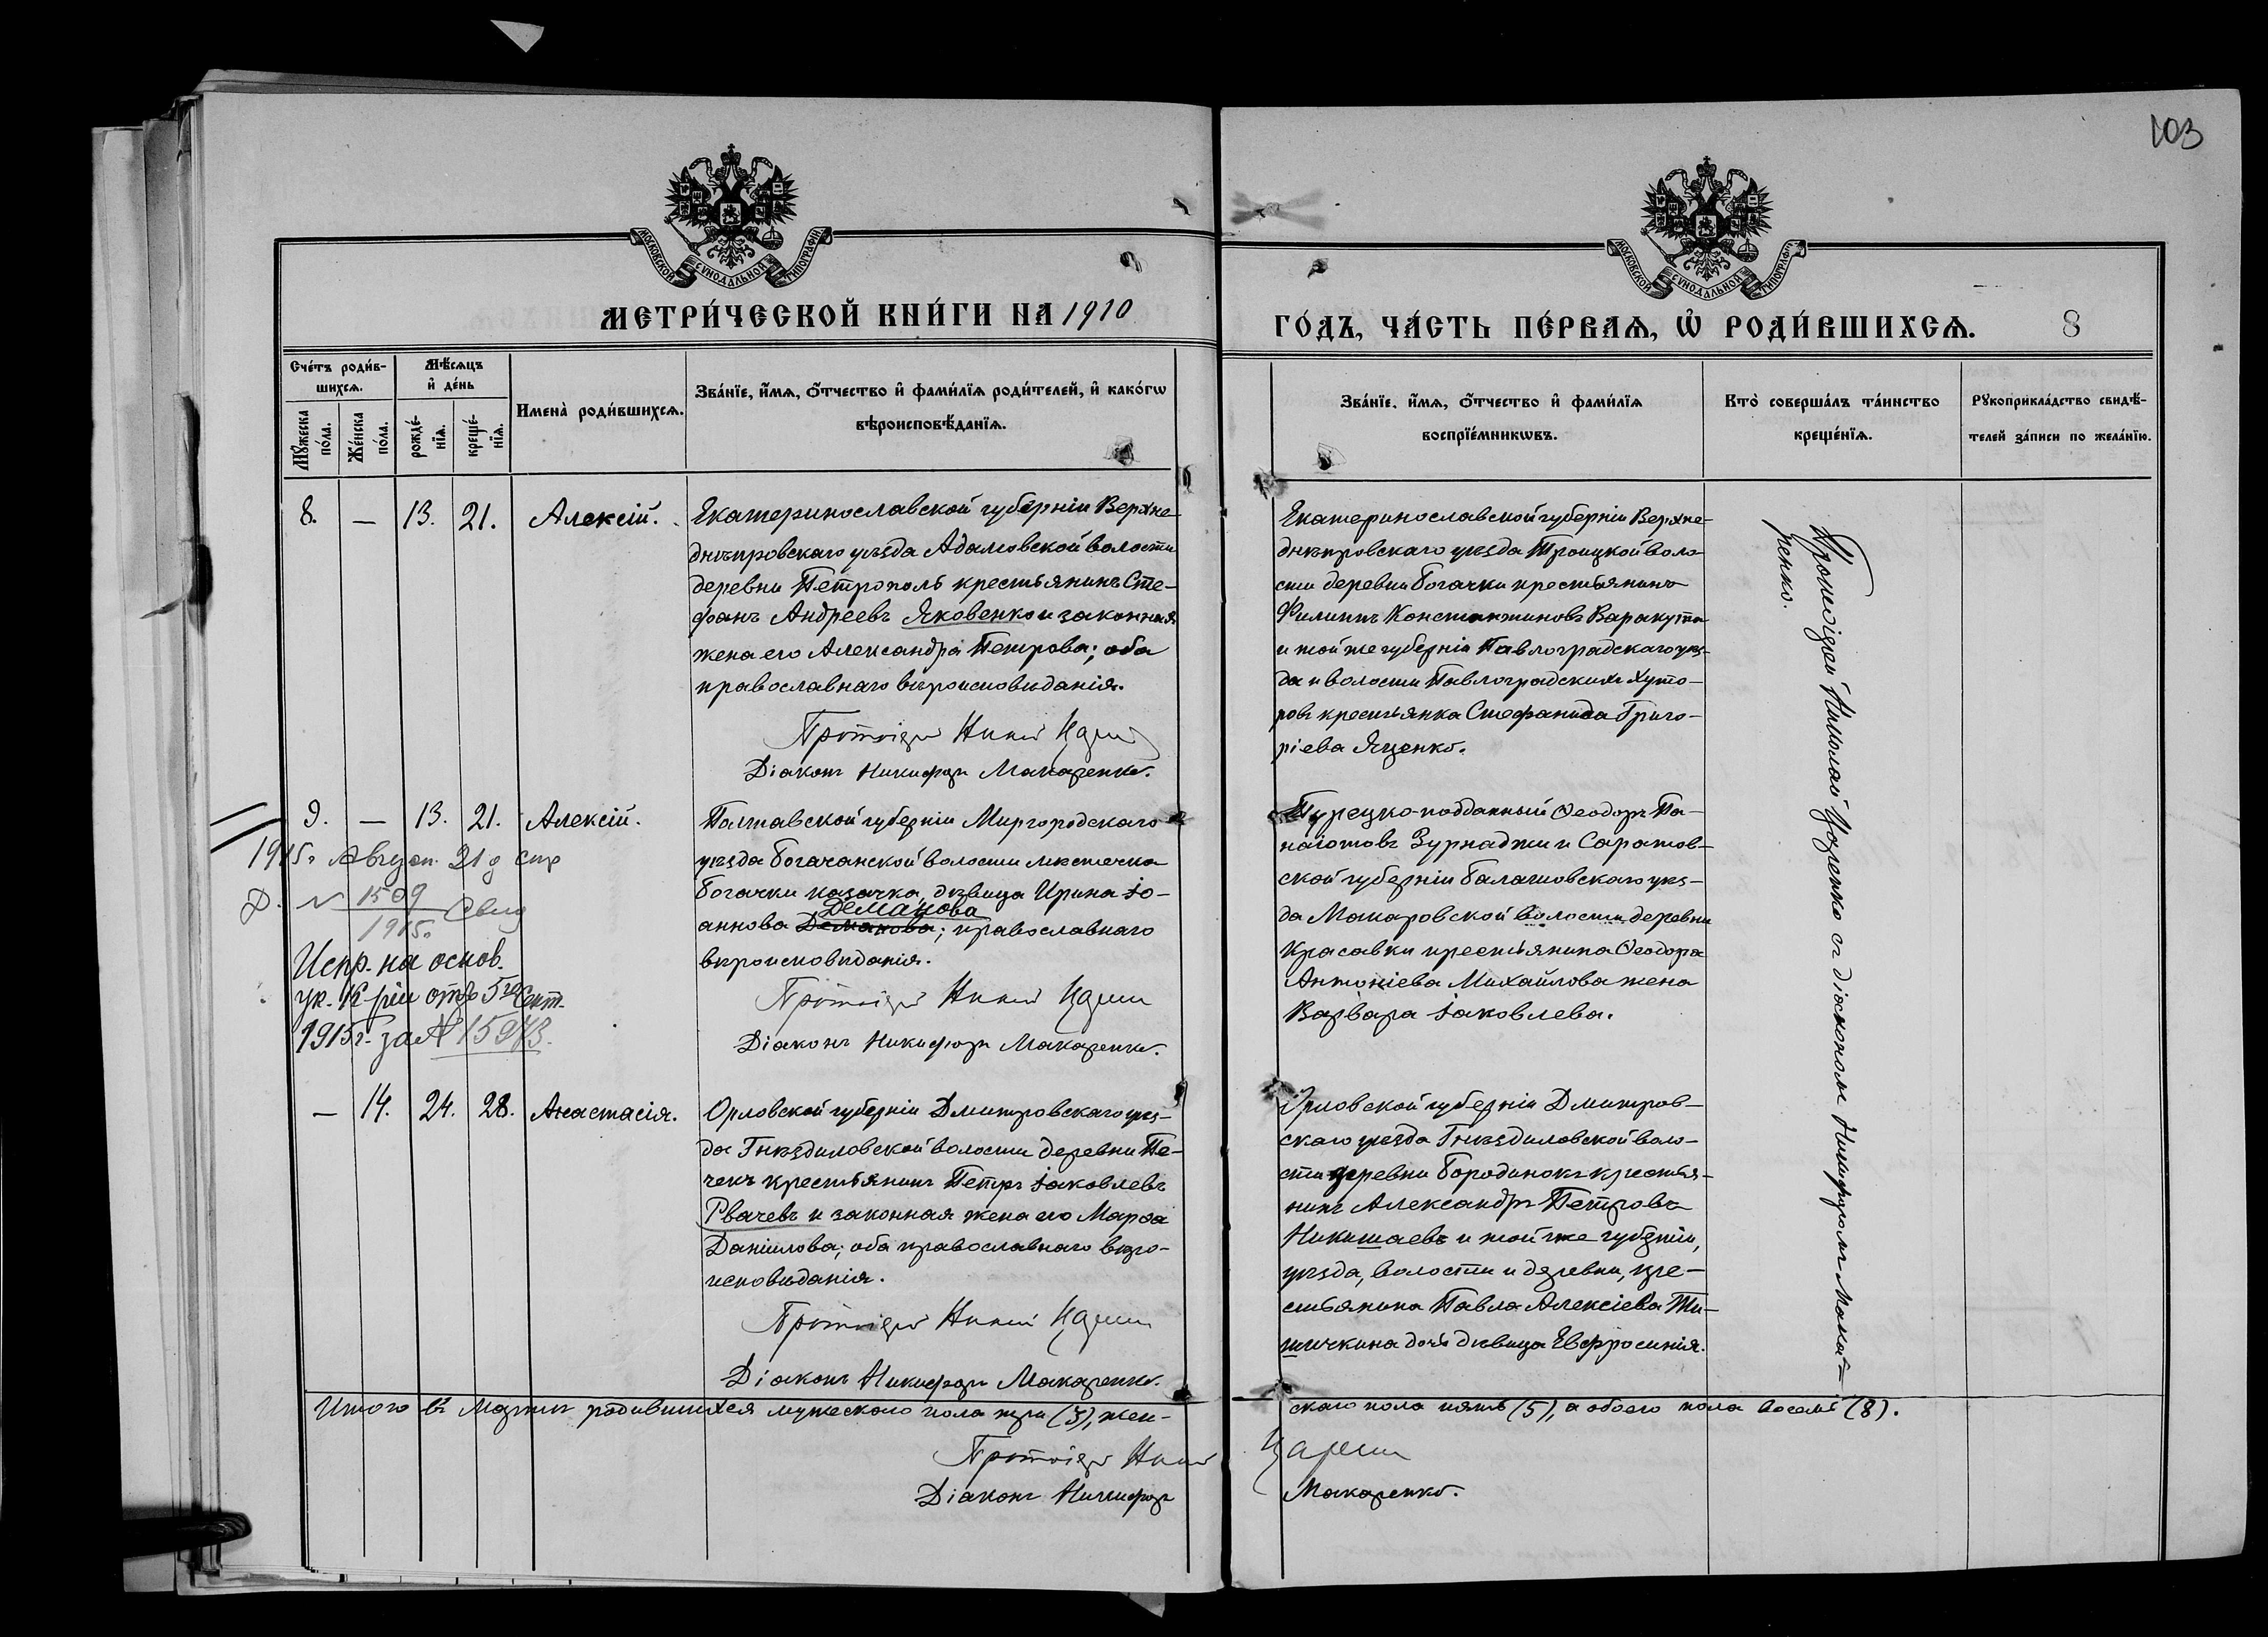 103
МОСКОВСКОЙ СѴНОДАЛЬНОЙ ТИПОГРАФІИ
МОСКОВСКОЙ СѴНОДАЛЬНОЙ ТИПОГРАФІИ
МЕТРИ́ЧЕСКОЙ КНИ́ГИ НА 1910
ГО́ДЪ, ЧА́СТЬ ПЕ́РВАѦ, Ѽ РОДИ́ВШИХСѦ. 8
Сче́тъ роди́в-
шихсѧ.
Мꙋ́жеска
по́ла.
Же́нска
по́ла.
Мѣ́сѧцъ
и҆ де́нь
рожде́-
нїѧ.
креще́-
нїѧ.
Имена̀ роди́вшихсѧ.
Зва́нїе, и҆́мѧ, ѻ҆́тчество и҆ фами́лїѧ роди́телей, и҆ како́гѡ
вѣроисповѣ́данїѧ.
Зва́нїе, и҆́мѧ, ѻ҆́тчество и҆ фами́лїѧ
воспрїе́мникѡвъ.
Кто̀ соверша́лъ та́инство
креще́нїѧ.
Рꙋкоприкла́дство свидѣ́-
телей за́писи по жела́нїю.
8. — 13. 21. Алексій.
Екатеринославской губерніи Верхне-
днѣпровскаго уѣзда Адамовской волости
деревни Петрополь крестьянинъ Сте-
фанъ Андреевъ Яковенко и законная
жена его Александра Петрова; оба
православнаго вѣроисповѣданія.
Протоіерей Николай
Діаконъ Никифоръ Макаренко.
Екатеринославской губерніи Верхне-
днѣпровскаго уѣзда Троицкой воло-
сти деревни Богачки крестьянинъ
Филиппъ Константиновъ Варакута
и той же губерніи Павлоградскаго уѣз-
да и волости Павлоградскихъ Хуто-
ровъ крестьянка Стефанида Григо-
ріева Яценко.
Протоіерей Николай Цоренко съ діакономъ Никифоромъ Мака-
ренко.
9. — 13. 21. Алексій.
1915г. Август. 21 д
№ 1509
1915г. Свид
Испр. на основ.
ук. К-ріи отъ 5го Сент.
1915г. за № 15973.
Полтавской губерніи Миргородскаго
уѣзда Богачанской волости мѣстечка
Богачки казачка, дѣвица Ирина Іо-
Демацова
аннова Деманова; православнаго
вѣроисповѣданія.
Протоіерей Николай
Діаконъ Никифоръ Макаренко.
Турецко-подданный Ѳеодоръ Па-
наіотовъ Зурнаджи и Саратов-
ской губерніи Балашовскаго уѣз-
да Макаровской волости деревни
Красавки крестьянина Ѳеодора
Антоніева Михайлова жена
Варвара Іаковлева.
— 14. 24. 28. Анастасія.
Орловской губерніи Дмитровскаго уѣз-
да Гнѣздиловской волости деревни Пе-
чекъ крестьянинъ Петръ Іаковлевъ
Рвачевъ и законная жена его Марѳа
Даніилова; оба православнаго вѣро-
исповѣданія.
Протоіерей Николай
Діаконъ Никифоръ Макаренко.
Орловской губерніи Дмитров-
скаго уѣзда Гнѣздиловской воло-
сти деревни Бородинокъ крестья-
нинъ Александръ Петровъ
Никишаевъ и той же губерніи,
уѣзда, волости и деревни, кре-
стьянина Павла Алексіева Ти-
шичкина дочь дѣвица Евфросинія.
Итого въ Мартѣ родившихся мужескаго пола три (3), жен-
скаго пола пять (5), а обоего пола восемь (8).
Протоіерей Николай
Діаконъ Никифоръ
Макаренко.